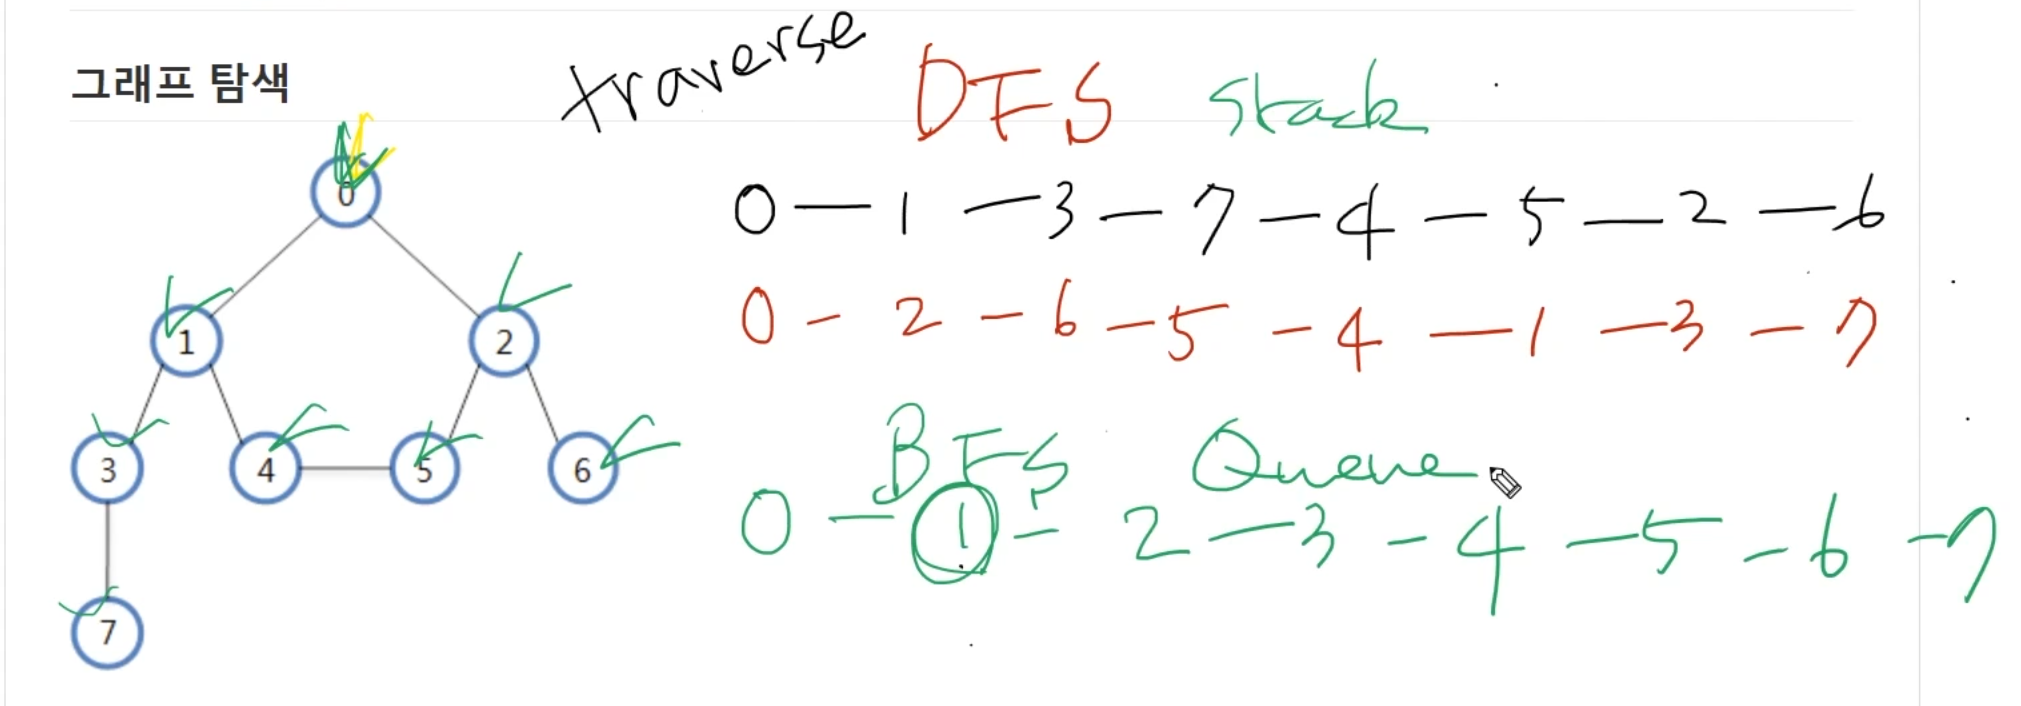 그래프 탐색
traverse
DFS stack
0 — 1 — 3 — 7 — 4 — 5 — 2 — 6
0 - 2 - 6 - 5 - 4 — 1 — 3 - 7
BFS Queue
0 — 1 - 2 — 3 - 4 — 5 - 6 - 7
0
1 2
3 4 5 6
7